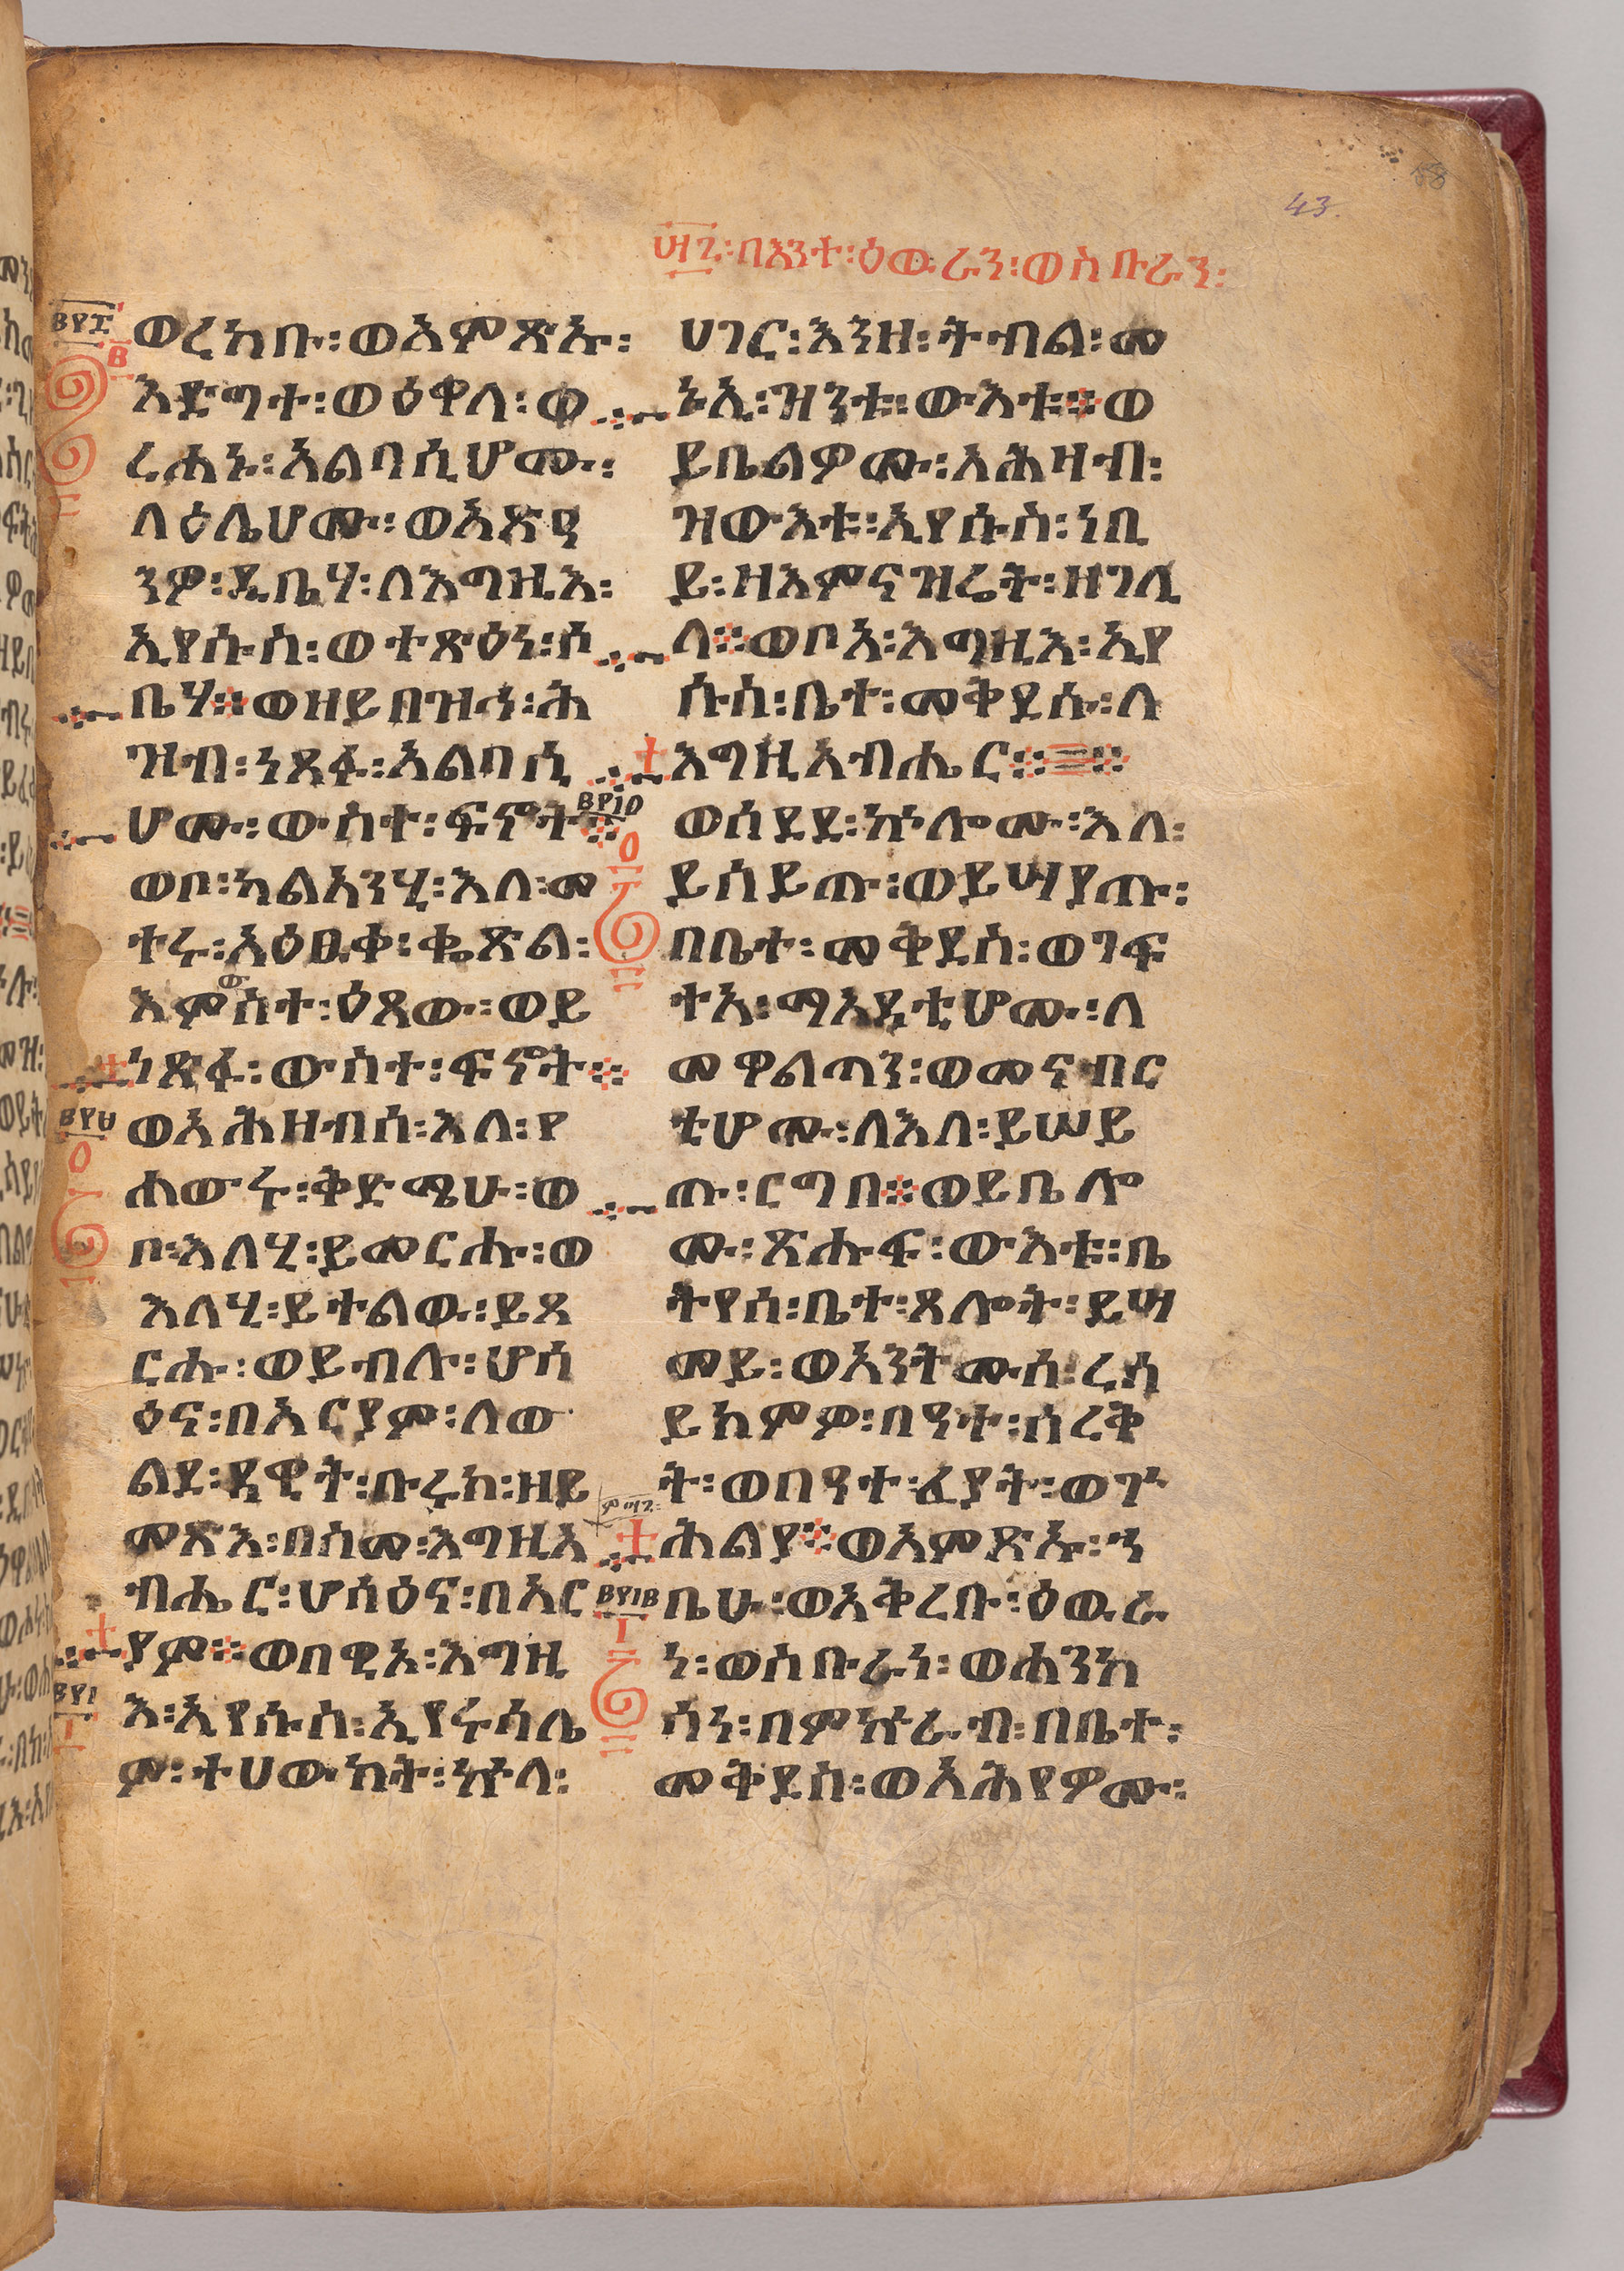 43.
፵፫፡በእንተ፡ዕውራን፡ወስቡራን፡
ወረከቡ፡ወአምጽኡ፡
እድግተ፡ወዕዋለ፡ወ
ረሐኑ፡አልባሲሆሙ፡
ላዕሌሆሙ፡ወአጽዓ
ንዎ፡ዲቤሃ፡ለእግዚእ፡
ኢየሱስ፡ወተጽዕነ፡ዲ
ቤሃ፨ወዘይበዝኅ፡ሕ
ዝብ፡ነጸፉ፡አልባሲ
ሆሙ፡ውስተ፡ፍኖት፨
ወቦ፡ካልአንሂ፡እለ፡መ
ተሩ፡አዕፁቀ፡ቈጽል፡
እምውስተ፡ዕጸው፡ወይ
ነጽፉ፡ውስተ፡ፍኖት፨
ወአሕዘብሰ፡እለ፡የ
ሐውሩ፡ቅድሜሁ፡ወ
ቦ፡እለሂ፡ይመርሑ፡ወ
እለሂ፡ይተልው፡ይጸ
ርሑ፡ወይብሉ፡ሆሳ
ዕና፡በአርያም፡ለወ
ልደ፡ዳዊት፡ቡሩክ፡ዘይ
መጽእ፡በስመ፡እግዚአ
ብሔር፡ሆሳዕና፡በአር
ያም፨ወበዊኦ፡እግዚ
እ፡ኢየሱስ፡ኢየሩሳሌ
ም፡ተሀውከት፡ኵላ፡
ሀገር፡እንዘ፡ትብል፡መ
ኑኢ፡ዝንቱ፡ውእቱ፨ወ
ይቤልዎሙ፡አሕዛብ፡
ዝውእቱ፡ኢየሱስ፡ነቢ
ይ፡ዘእምናዝሬት፡ዘገሊ
ላ፨ወቦአ፡እግዚእ፡ኢየ
ሱስ፡ቤተ፡መቅደሱ፡ለ
እግዚአብሔር፨፨
ወሰደደ፡ኵሎሙ፡እለ፡
ይሰይጡ፡ወይሣያጡ፡
በቤተ፡መቅደስ፡ወገፍ
ትአ፡ማእዳቲሆሙ፡ለ
መዋልጣን፡ወመናብር
ቲሆሙ፡ለእለ፡ይሠይ
ጡ፡ርግበ፨ወይቤሎ
ሙ፡ጽሑፍ፡ውእቱ፡ቤ
ትየሰ፡ቤተ፡ጸሎት፡ይሣ
መይ፡ወአንትሙሰ፡ረሰ
ይክምዎ፡በዓተ፡ሰረቅ
ት፡ወበዓተ፡ፈያት፡ወጕ
ሕልያ፨ወአምጽኡ፡ኀ
ቤሁ፡ወአቅረቡ፡ዕውራ
ነ፡ወስቡራነ፡ወሐንካ
ሳነ፡በምኵራብ፡በቤተ፡
መቅደስ፡ወአሕየዎሙ፡